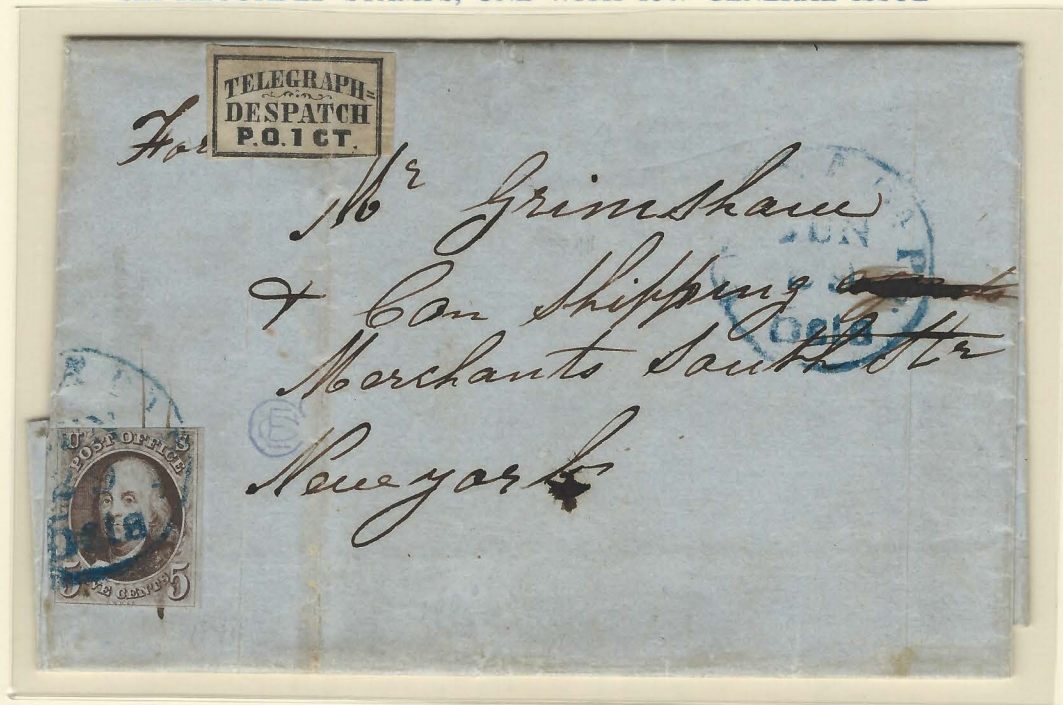 TELEGRAPH=
DESPATCH
P.O. 1 CT.
For
Mr Grimshaw
& Con Shipping
Merchants South Str
New york
JUN
Dels
U S
POST OFFICE
5 FIVE CENTS 5
Dels